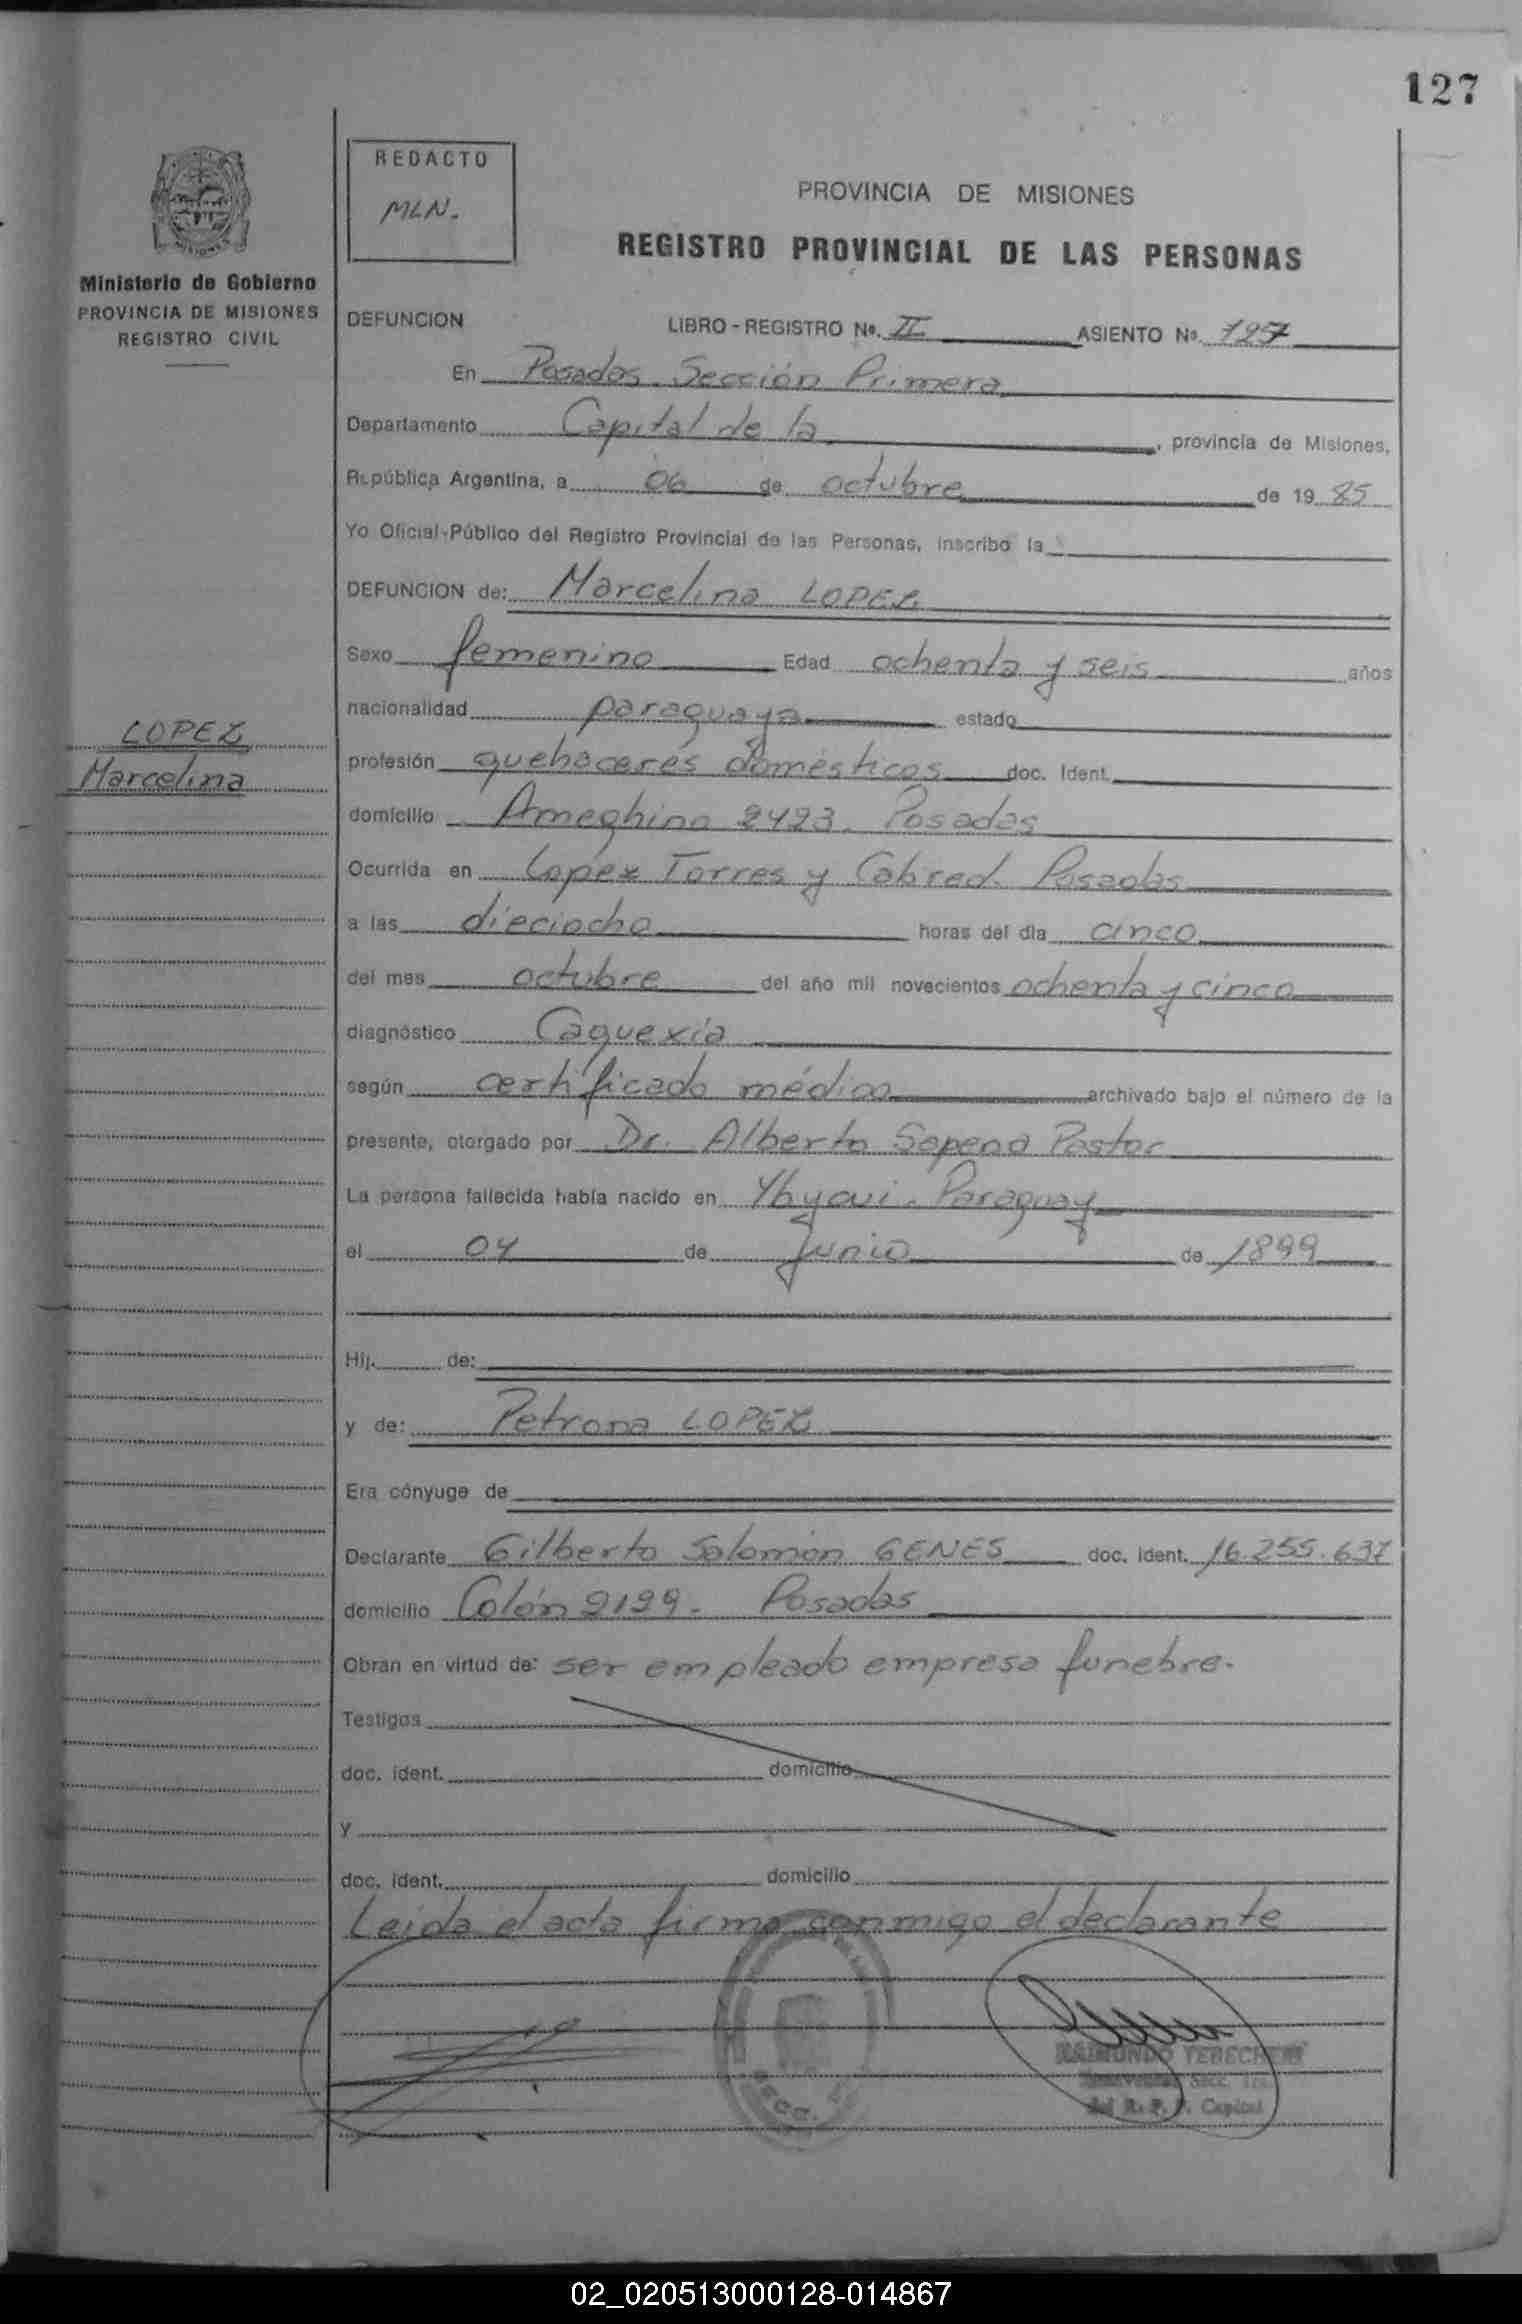 127
REDACTO
MLN.
PROVINCIA DE MISIONES
REGISTRO PROVINCIAL DE LAS PERSONAS
Ministerio de Gobierno
PROVINCIA DE MISIONES
REGISTRO CIVIL
DEFUNCION LIBRO - REGISTRO Nº. II ASIENTO Nº. 1257
En Posadas. Sección Primera
Departamento Capital de la , provincia de Misiones,
República Argentina, a 06 de octubre de 19 85
Yo Oficial-Público del Registro Provincial de las Personas, inscribo la
DEFUNCION de: Marcelina LOPEZ
Sexo femenino Edad ochenta y seis años
nacionalidad paraguaya estado
LOPEZ
Marcelina
profesión quehaceres domésticos doc. Ident.
domicilio Ameghino 2423. Posadas
Ocurrida en Lopez Torres y Cabred. Posadas
a las dieciocho horas del día cinco
del mes octubre del año mil novecientos ochenta y cinco
diagnóstico Caquexia
según certificado médico archivado bajo el número de la
presente, otorgado por Dr. Alberto Sapena Pastor
La persona fallecida había nacido en Ybycui. Paraguay
el 04 de junio de 1899
Hij. de:
y de: Petrona LOPEZ
Era cónyuge de
Declarante Gilberto Salomón GENES doc. ident. 16.255.637
domicilio Colón 2199. Posadas
Obran en virtud de: ser empleado empresa funebre.
Testigos
doc. ident. domicilio
Y
doc. ident. domicilio
Leida el acta firma conmigo el declarante
RAIMUNDO
SECC.
del R. P. P. Capital
02_020513000128-014867